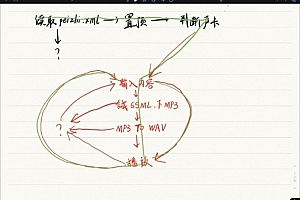 读取peizhi.xml → 置顶 → 判断声卡
?
输入内容
SSML.下MP3
?
MP3 TO WAV
播放